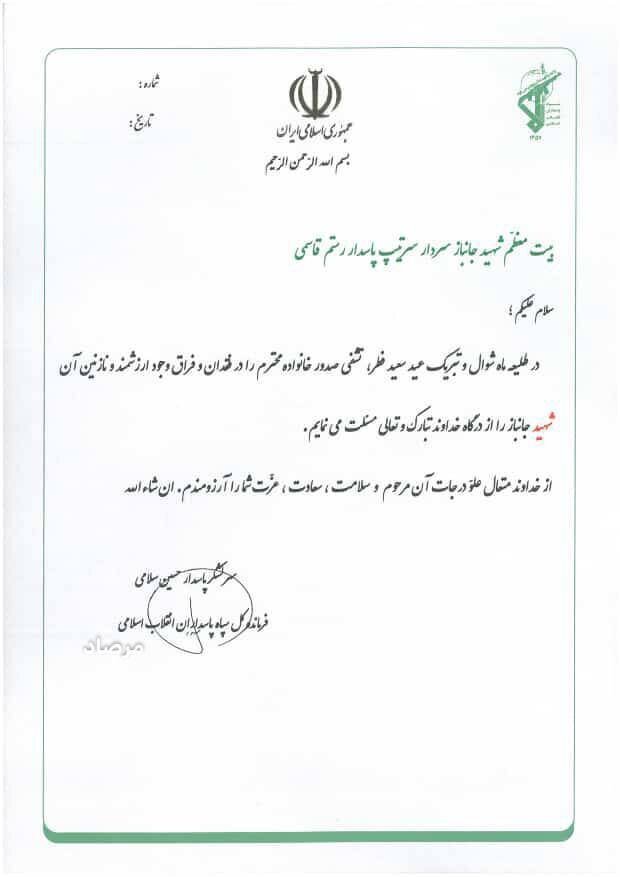 شماره :
تاریخ :
جمهوری اسلامی ایران
بسم الله الرحمن الرحیم
۱۳۵۷
بیت معظّم شهید جانباز سردار سرتیپ پاسدار رستم قاسمی
سلام علیکم ؛
در طلیعه ماه شوال و تبریک عید سعید فطر، تشفی صدور خانواده محترم را در فقدان و فراق وجود ارزشمند و نازنین آن
شهید جانباز را از درگاه خداوند تبارک و تعالی مسئلت می نمایم .
از خداوند متعال علوّ درجات آن مرحوم و سلامت ، سعادت ، عزّت شما را آرزومندم . ان شاء الله
سرلشکر پاسدار حسین سلامی
فرمانده کل سپاه پاسداران انقلاب اسلامی
مرصاد